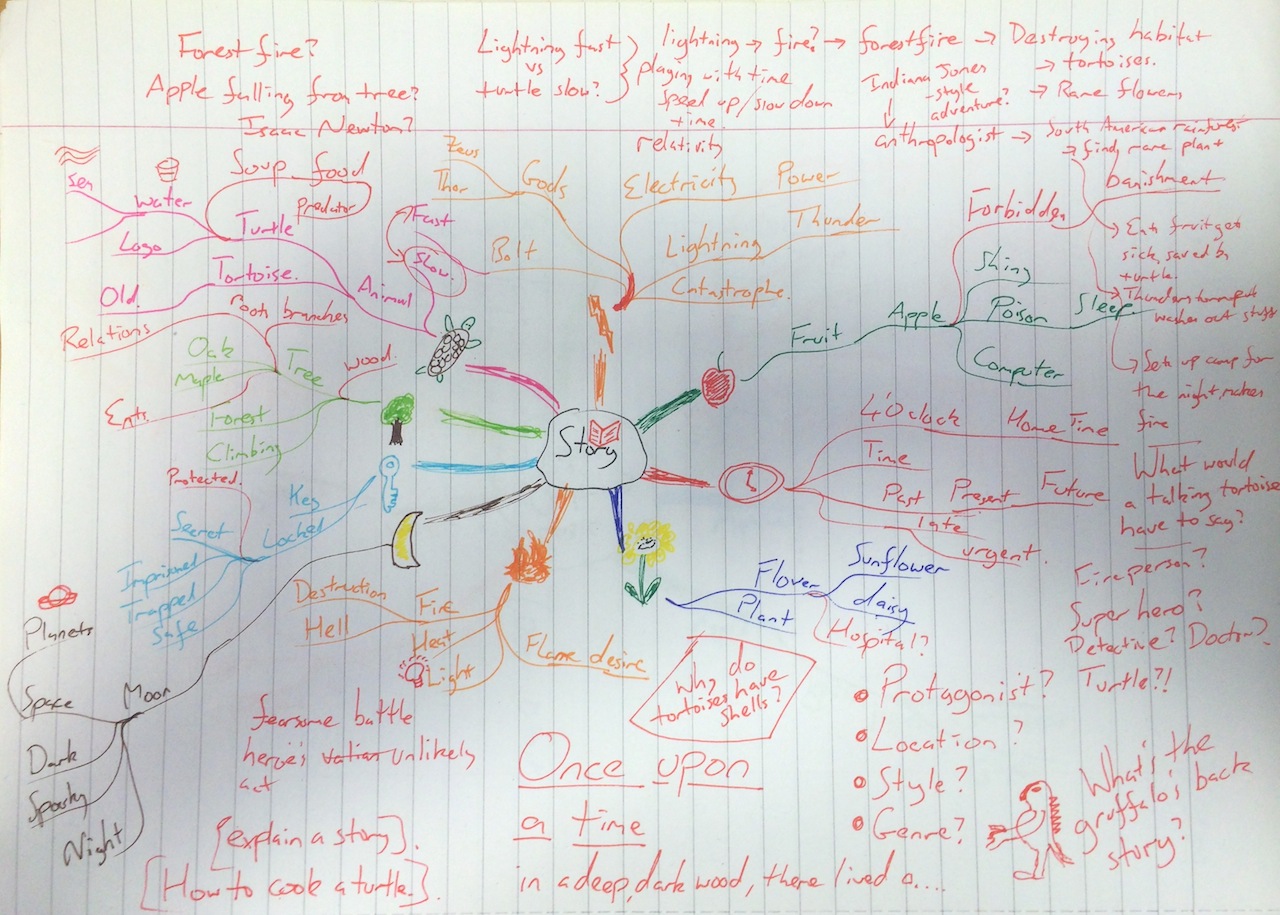 Forest fire?
Apple falling from tree?
Isaac Newton?
Lightning fast
vs
turtle slow?
lightning → fire? → forestfire → Destroying habitat
playing with time
speed up/slow down
time.
relativity
→ tortoises.
→ Rare flowers
Indiana Jones
-style
adventure?
anthropologist → South American rainforest
→ find rare plant
Eats fruit gets
sick, saved by
turtle.
washes out stuff
Sets up camp for
the night, makes
fire
What would
a talking tortoise
have to say?
Fireperson?
Super hero?
Detective? Doctor?
Turtle?!
Story
Animal
Turtle
Soup food
Predator
Water
Sea
Logo
Tortoise.
Old.
Fast
Slow.
Gods
Zeus
Thor
Bolt
Electricity Power
Lightning
Thunder
Catastrophe.
Fruit
Apple
Forbidden
banishment
Shiny
Poison Sleep.
Computer
4 'O clock Home Time
Time
Past Present Future
late
urgent.
Flower
Sunflower
daisy
Hospital?
Plant
Fire
Destruction
Hell
Heat
Light
Flame desire
Moon
Planets
Space
Dark
Spooky
Night
Key
Locked
Protected.
Secret
Imprisoned
Trapped
Safe
Tree
wood.
branches
Relations
Oak
Maple
Ents
Forest
Climbing
Why do
tortoises have
shells?
• Protagonist?
• Location?
• Style?
• Genre?
What's the
gruffalo's back
story?
fearsome battle
unlikely
act
[explain a story].
[How to cook a turtle.].
Once upon
a time
in a deep, dark wood, there lived a....